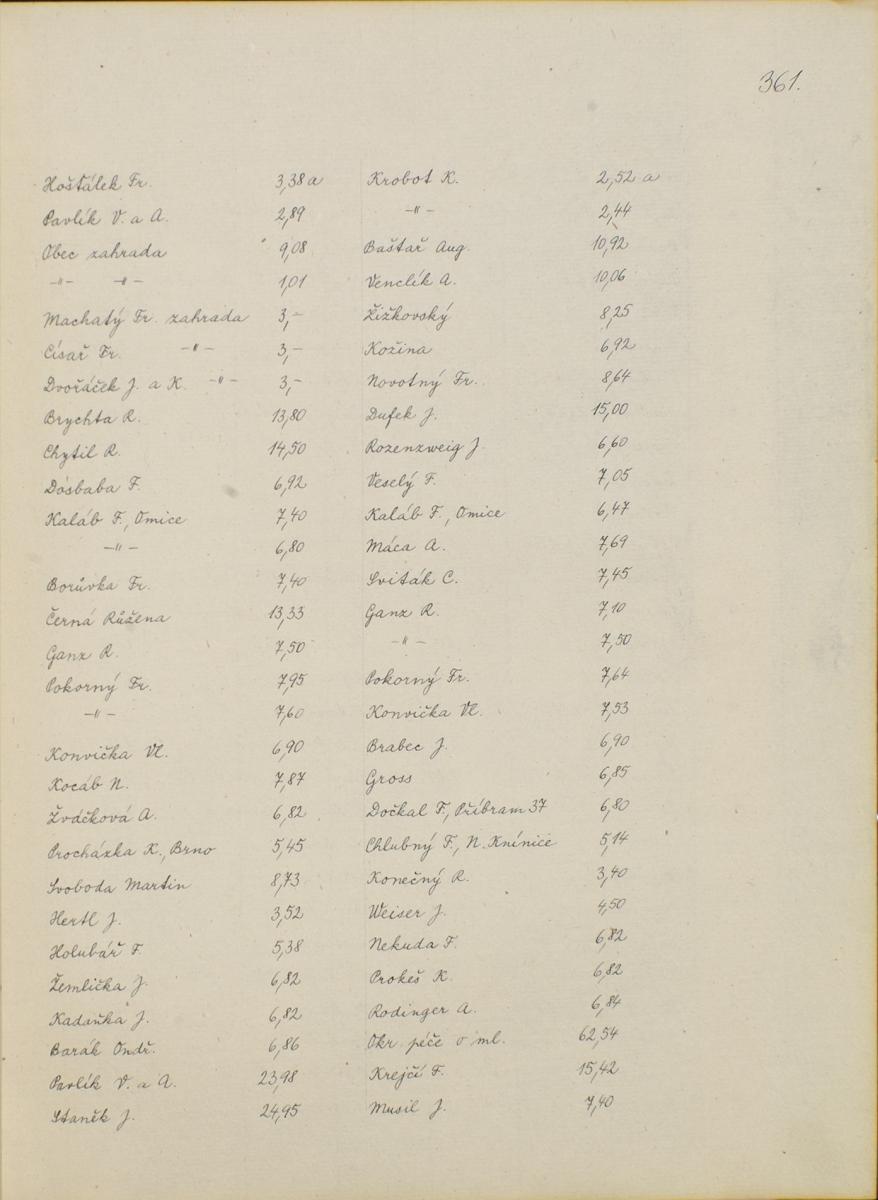 361.
Hošťálek Fr. 3,38 a
Pavlík V. a A. 2,89
Obec zahrada 9,08
-"- -"- 1,01
Machatý Fr. zahrada 3,-
Císař Fr. -"- 3,-
Dvořáček J. a K. -"- 3,-
Brychta R. 13,80
Chytil R. 14,50
Dosbaba F. 6,92
Kaláb F., Omice 7,40
-"- 6,80
Borůvka Fr. 7,40
Černá Růžena 13,33
Ganz R. 7,50
Pokorný Fr. 7,95
-"- 7,60
Konvička Vl. 6,90
Kocáb N. 7,87
Žváčková A. 6,82
Procházka K., Brno 5,45
Svoboda Martin 8,73
Hertl J. 3,52
Holubář F. 5,38
Žemlička J. 6,82
Kadaňka J. 6,82
Barák Ondř. 6,86
Pavlík V. a A. 23,98
Staněk J. 24,95
Krobot K. 2,52 a
-"- 2,44
Baštař Aug. 10,92
Venclík A. 10,06
Žižkovský 8,25
Kožina 6,92
Novotný Fr. 8,64
Dufek J. 15,00
Rozenzweig J. 6,60
Veselý F. 7,05
Kaláb F., Omice 6,47
Máca A. 7,69
Sviták C. 7,45
Ganz R. 7,10
-"- 7,50
Pokorný Fr. 7,64
Konvička Vl. 7,53
Brabec J. 6,90
Gross 6,85
Dočkal F., Příbram 37 6,80
Chlubný F., N. Knínice 5,14
Konečný R. 3,40
Weiser J. 4,50
Nekuda F. 6,82
Prokeš K. 6,82
Rodinger A. 6,84
Okr. péče o ml. 62,54
Krejčí F. 15,42
Musil J. 7,40